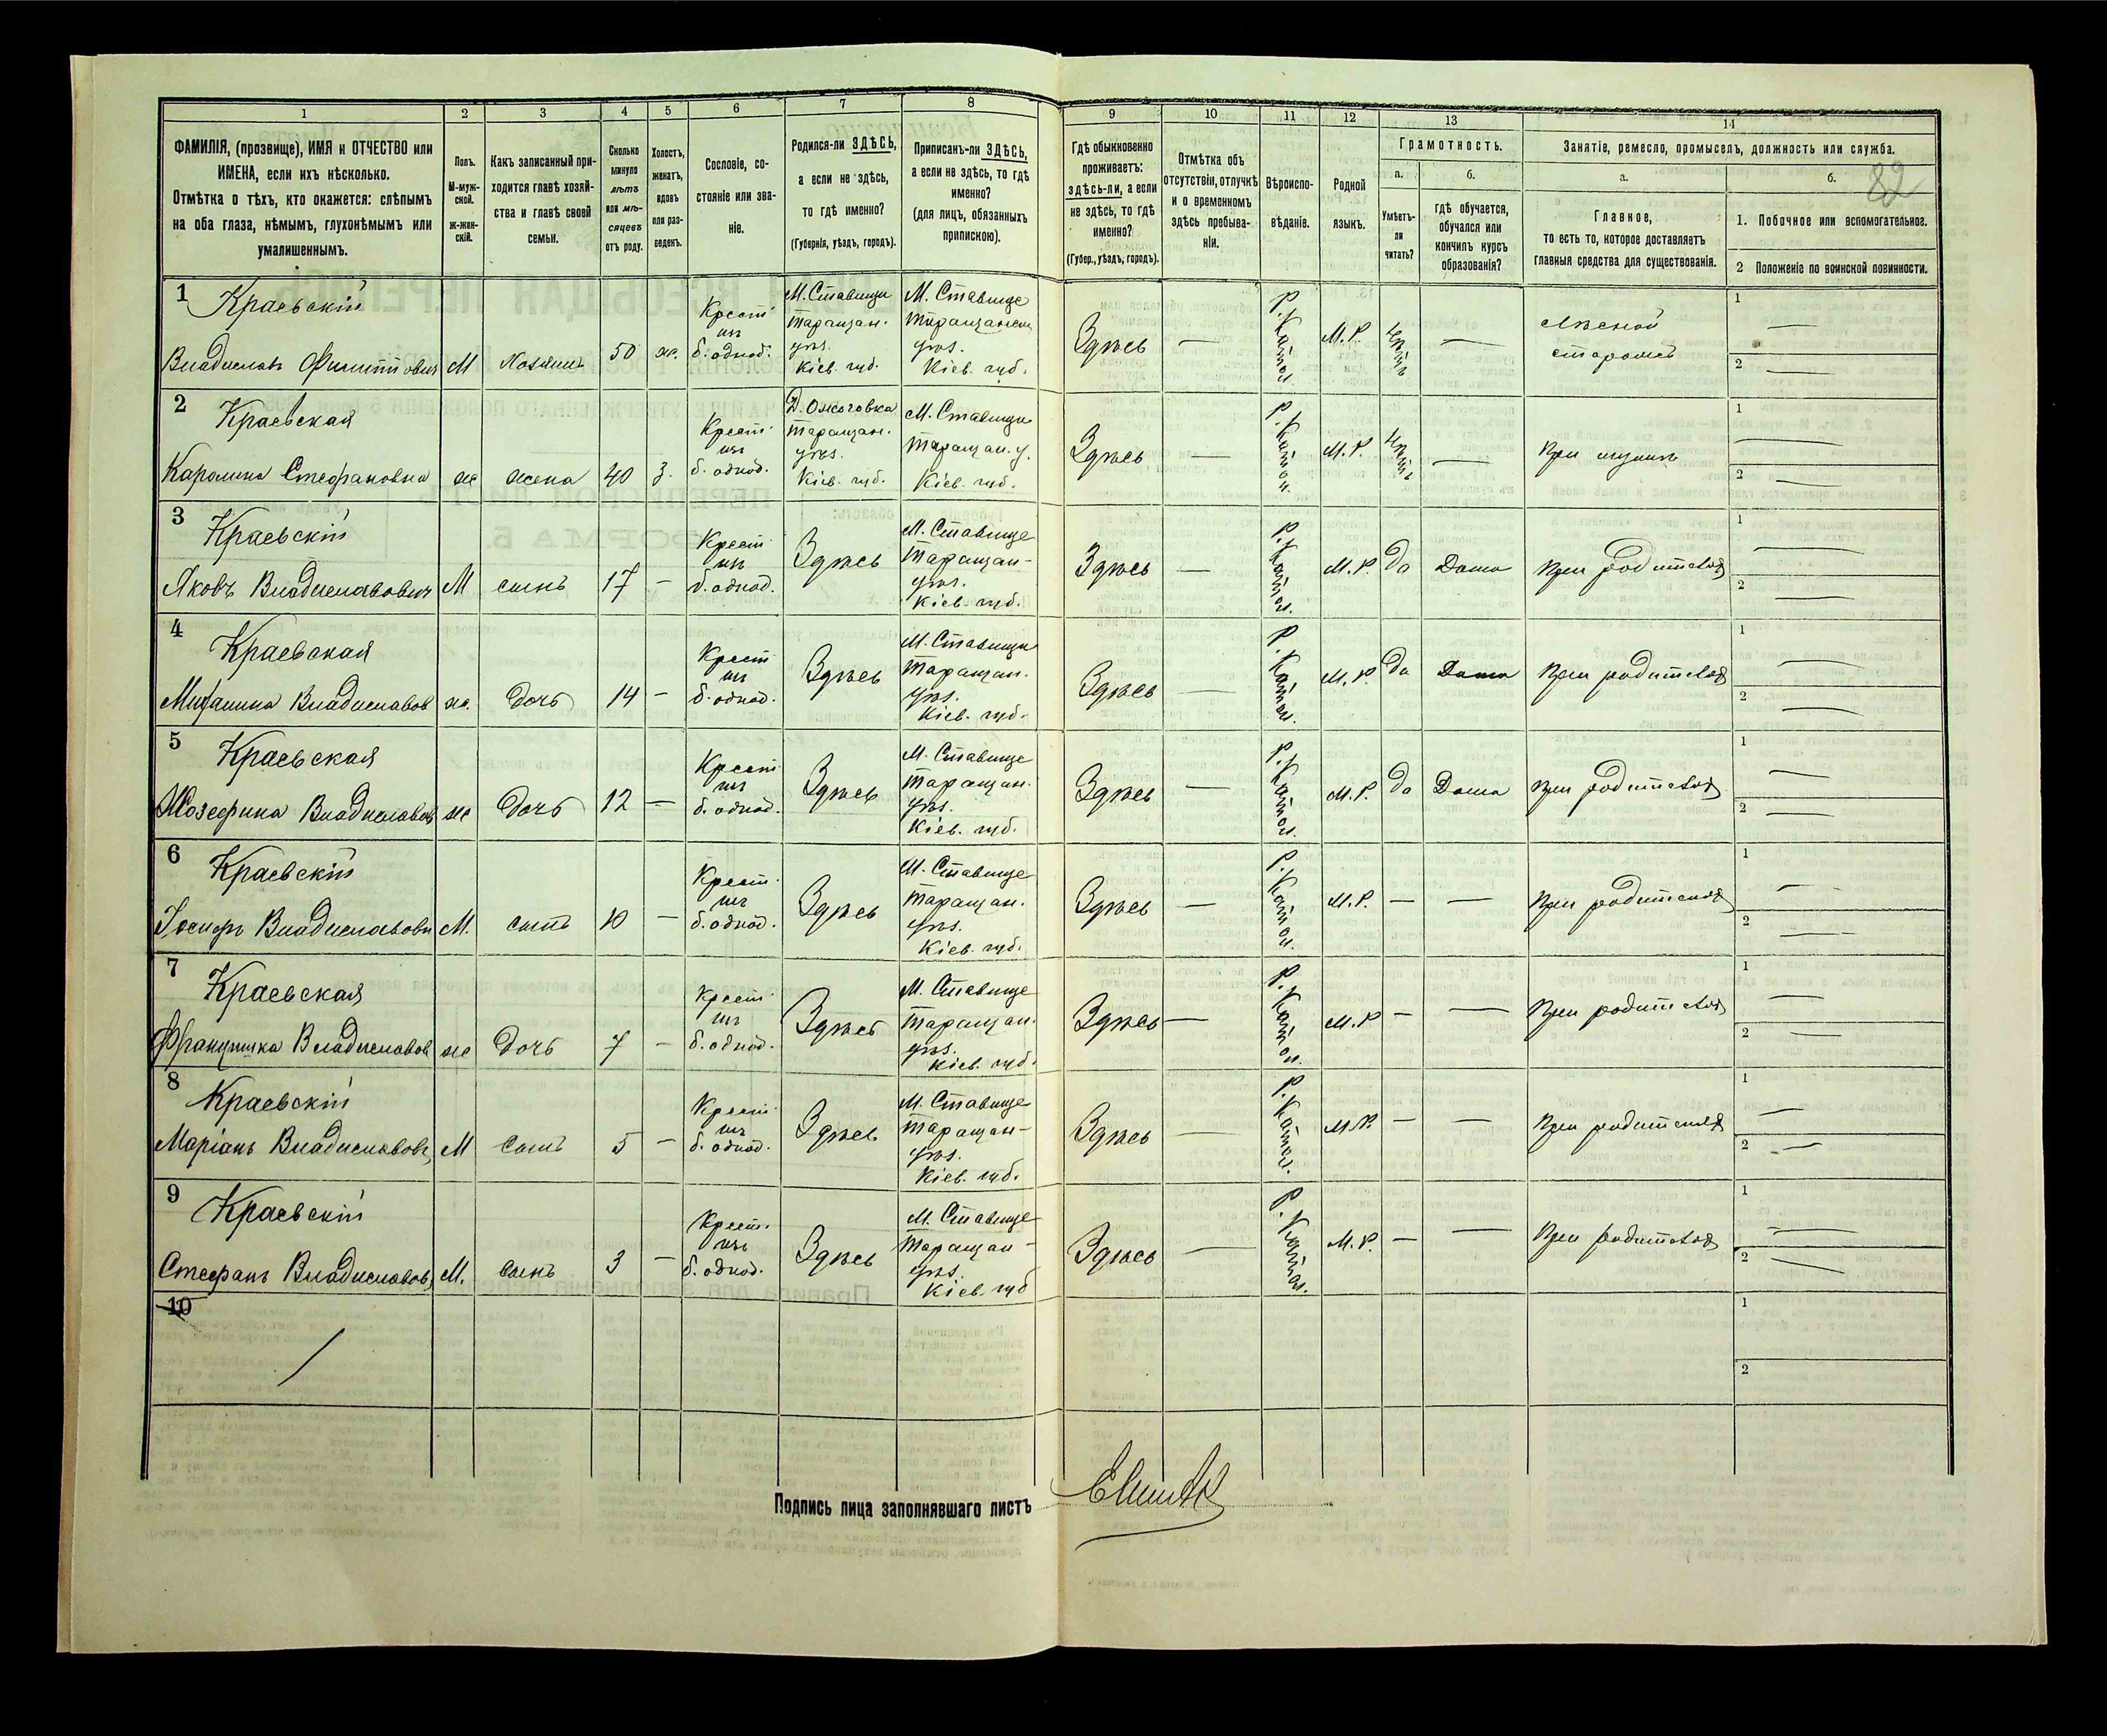 1 2 3 4 5 6 7 8 9 10 11 12 13 14
ФАМИЛІЯ, (прозвище), ИМЯ и ОТЧЕСТВО или
ИМЕНА, если ихъ нѣсколько.
Отмѣтка о тѣхъ, кто окажется: слѣпымъ
на оба глаза, нѣмымъ, глухонѣмымъ или
умалишеннымъ.
Полъ.
М-муж-
ской.
ж-жен-
скій.
Какъ записанный при-
ходится главѣ хозяй-
ства и главѣ своей
семьи.
Сколько
минуло
лѣтъ
или мѣ-
сяцевъ
отъ роду.
Холостъ,
женатъ,
вдовъ
или раз-
веденъ.
Сословіе, со-
стояніе или зва-
ніе.
Родился-ли ЗДѢСЬ,
а если не здѣсь,
то гдѣ именно?
(Губернія, уѣздъ, городъ).
Приписанъ-ли ЗДѢСЬ,
а если не здѣсь, то гдѣ
именно?
(для лицъ, обязанныхъ
припискою).
Гдѣ обыкновенно
проживаетъ:
здѣсь-ли, а если
не здѣсь, то гдѣ
именно?
(Губер., уѣздъ, городъ).
Отмѣтка объ
отсутствіи, отлучкѣ
и о временномъ
здѣсь пребыва-
ніи.
Вѣроиспо-
вѣданіе.
Родной
языкъ.
Грамотность.
а.
Умѣетъ-
ли
читать?
б.
гдѣ обучается,
обучался или
кончилъ курсъ
образованія?
Занятіе, ремесло, промыселъ, должность или служба.
а.
Главное,
то есть то, которое доставляетъ
главныя средства для существованія.
б.
82
1. Побочное или вспомогательное.
2 Положеніе по воинской повинности.
1
Краевскій
Владиславъ Филипповичъ М Хозяинъ 50 ж.
Крест.
изъ
б. однод.
М. Ставище
Таращан.
уѣз.
Кіев. губ.
М. Ставище
Таращанск.
уѣз.
Кіев. губ.
Здѣсь — Р. Катол. М. Р. —
Лѣсной
сторожъ
1 —
2 —
2
Краевская
Каролина Стефановна ж жена 40 з.
Крест.
изъ
б. однод.
Д. Ожоговка
Таращан.
уѣз.
Кіев. губ.
М. Ставище
Таращан. у.
Кіев. губ.
Здѣсь — Р. Катол. М. Р. — При мужѣ
1 —
2 —
3
Краевскій
Яковъ Владиславовичъ М сынъ 17 —
Крест.
изъ
б. однод.
Здѣсь
М. Ставище
Таращан-
уѣз.
Кіев. губ.
Здѣсь — Р. Катол. М. Р. да Дома При родителяхъ
1 —
2 —
4
Краевская
Владиславов ж. дочь 14 —
Крест.
изъ
б. однод.
Здѣсь
М. Ставище
Таращан.
уѣз.
Кіев. губ.
Здѣсь — Р. Катол. М. Р. да Дома При родителяхъ
1 —
2 —
5
Краевская
Жозефина Владиславов ж дочь 12 —
Крест.
изъ
б. однод.
Здѣсь
М. Ставище
Таращан.
уѣз.
Кіев. губ.
Здѣсь — Р. Катол. М. Р. да Дома При родителяхъ
1 —
2 —
6
Краевскій
Іосифъ Владиславови М. сынъ 10 —
Крест.
изъ
б. однод.
Здѣсь
М. Ставище
Таращан.
уѣз.
Кіев. губ.
Здѣсь — Р. Катол. М. Р. — — При родителяхъ
1 —
2 —
7
Краевская
Францишка Владиславов ж дочь 7 —
Крест.
изъ
б. однод.
Здѣсь
М. Ставище
Таращан.
уѣз.
Кіев. губ.
Здѣсь — Р. Катол. М. Р — — При родителяхъ
1 —
2 —
8
Краевскій
Маріанъ Владиславов. М сынъ 5 —
Крест.
изъ
б. однод.
Здѣсь
М. Ставище
Таращан-
уѣз.
Кіев. губ.
Здѣсь — Р. Катол. М. Р. — — При родителяхъ
1 —
2 —
9
Краевскій
Стефанъ Владиславов. М. сынъ 3 —
Крест.
изъ
б. однод.
Здѣсь
М. Ставище
Таращан-
уѣз.
Кіев. губ
Здѣсь — Р. Катол. М. Р. — — При родителяхъ
1 —
2 —
10
1
2
Подпись лица заполнявшаго листъ